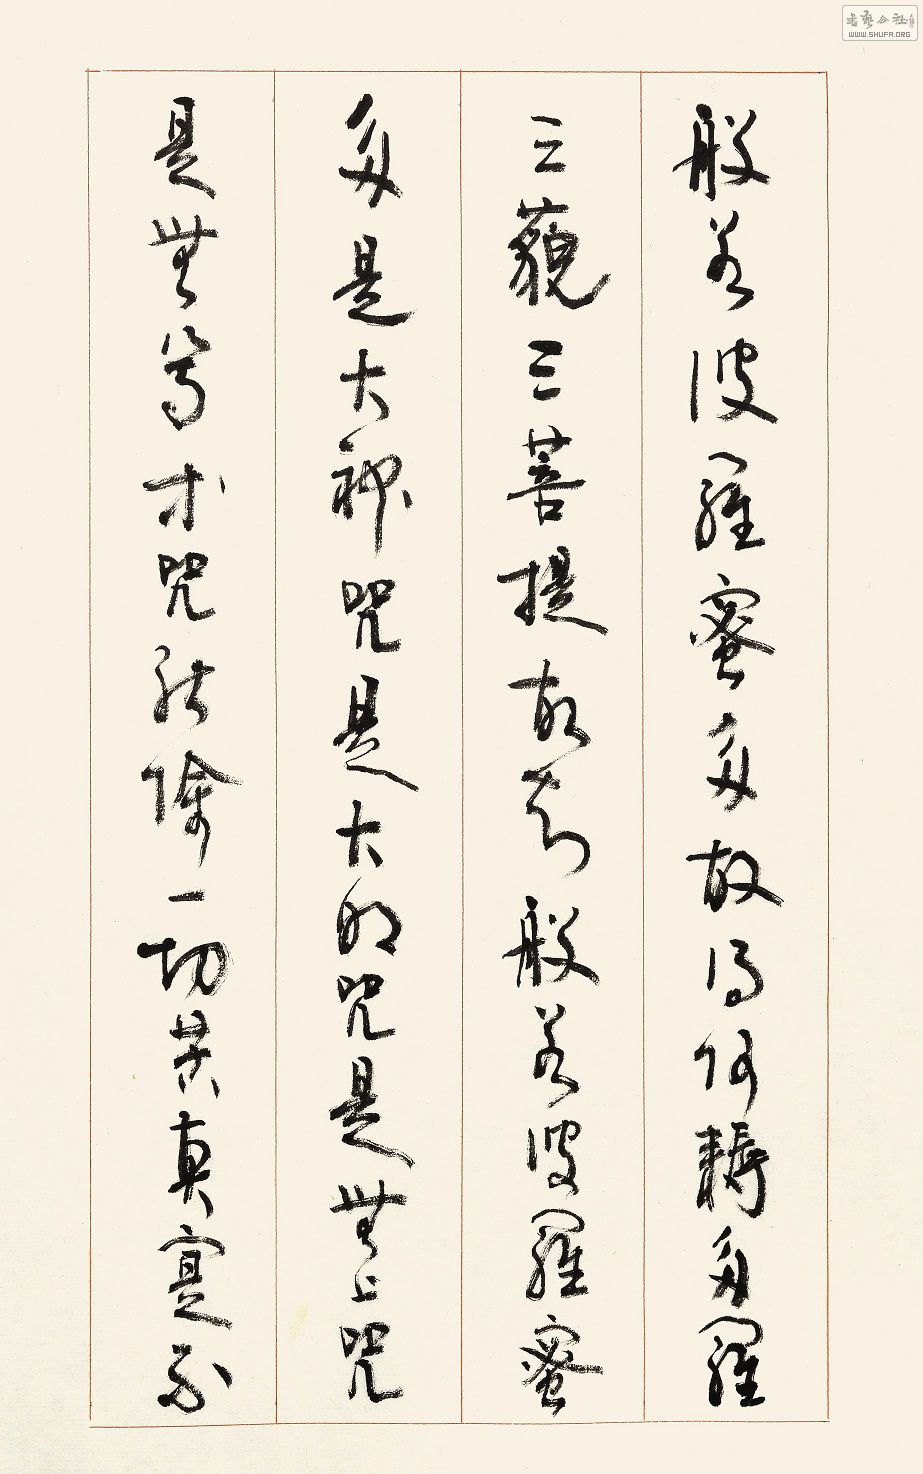 般若波羅蜜多故得阿耨多羅
三藐三菩提故知般若波羅蜜
多是大神咒是大明咒是無上咒
是無等等咒能除一切苦真實不
WWW.SHUFA.ORG